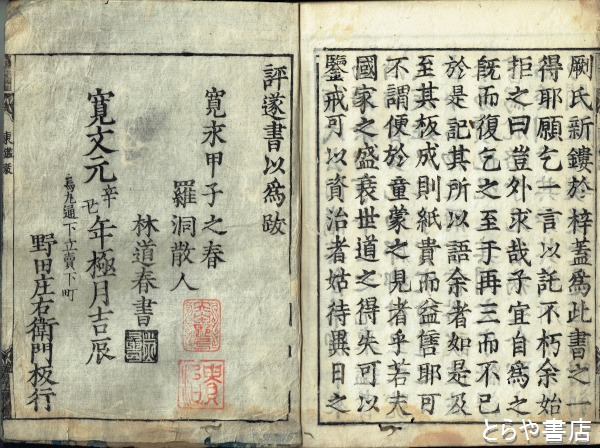 劂氏新鏤於梓蓋爲此書之一
得耶願乞一言以託不朽余始
拒之曰豈外求哉子宜自爲之
既而復乞之至于再三而不已
於是記其所以語余者如是及
至其板成則紙貴而益售耶可
不謂便於童蒙之見者乎若夫
國家之盛衰世道之得失可以
鑒戒可以資治者姑待異日之
評遂書以爲跋
寛永甲子之春
羅洞散人
林道春書
寛文元辛丑年極月吉辰
烏丸通下立賣下町
野田庄右衛門板行
東鑑跋
とらや書店